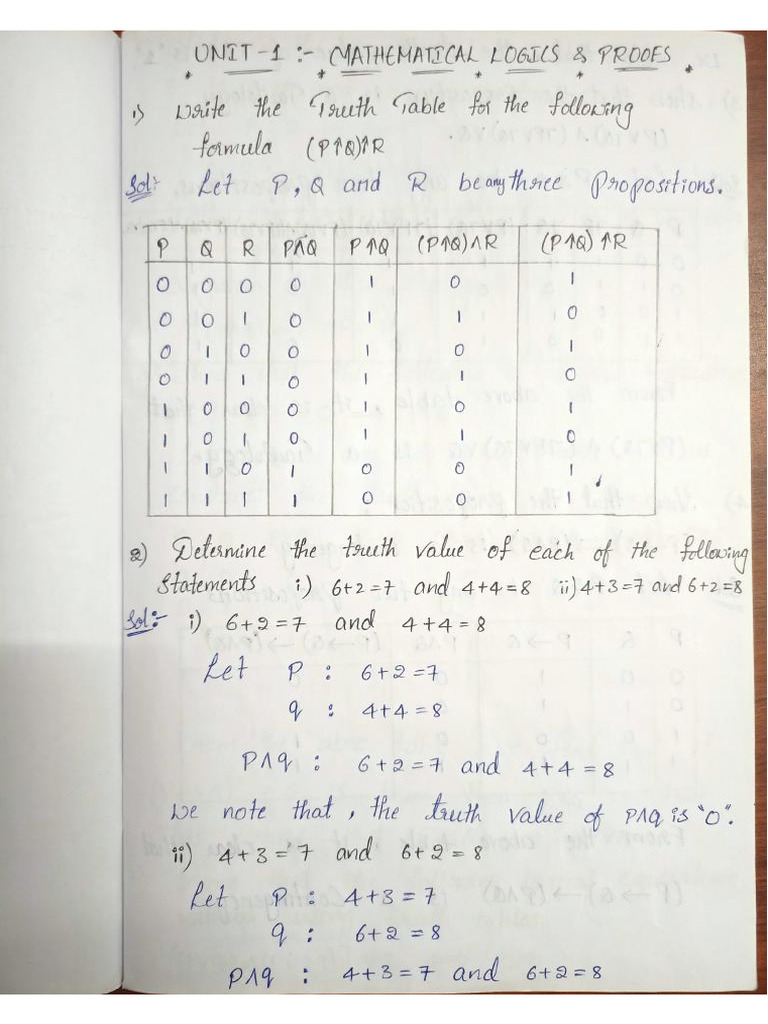 UNIT-1 :- MATHEMATICAL LOGICS & PROOFS
1) Write the Truth Table for the following
formula (P↑Q)↑R
Sol:- Let P, Q and R be any three Propositions.
P Q R P∧Q P↑Q (P↑Q)∧R (P↑Q)↑R
0 0 0 0 1 0 1
0 0 1 0 1 1 0
0 1 0 0 1 0 1
0 1 1 0 1 1 0
1 0 0 0 1 0 1
1 0 1 0 1 1 0
1 1 0 1 0 0 1
1 1 1 1 0 0 1
2) Determine the truth value of each of the following
Statements i) 6+2=7 and 4+4=8 ii) 4+3=7 and 6+2=8
Sol:- i) 6+2=7 and 4+4=8
Let P : 6+2=7
q : 4+4=8
P∧q : 6+2=7 and 4+4=8
We note that, the truth value of P∧q is "0".
ii) 4+3=7 and 6+2=8
Let P : 4+3=7
q : 6+2=8
P∧q : 4+3=7 and 6+2=8